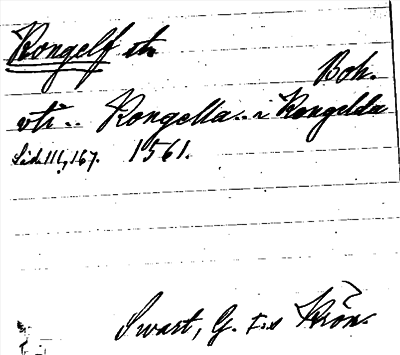 Kongelf st
Boh.
vti .. Kongella .. i Kongelda
Lid. III, 167. 1561.
Swart, G. I:s Krön.